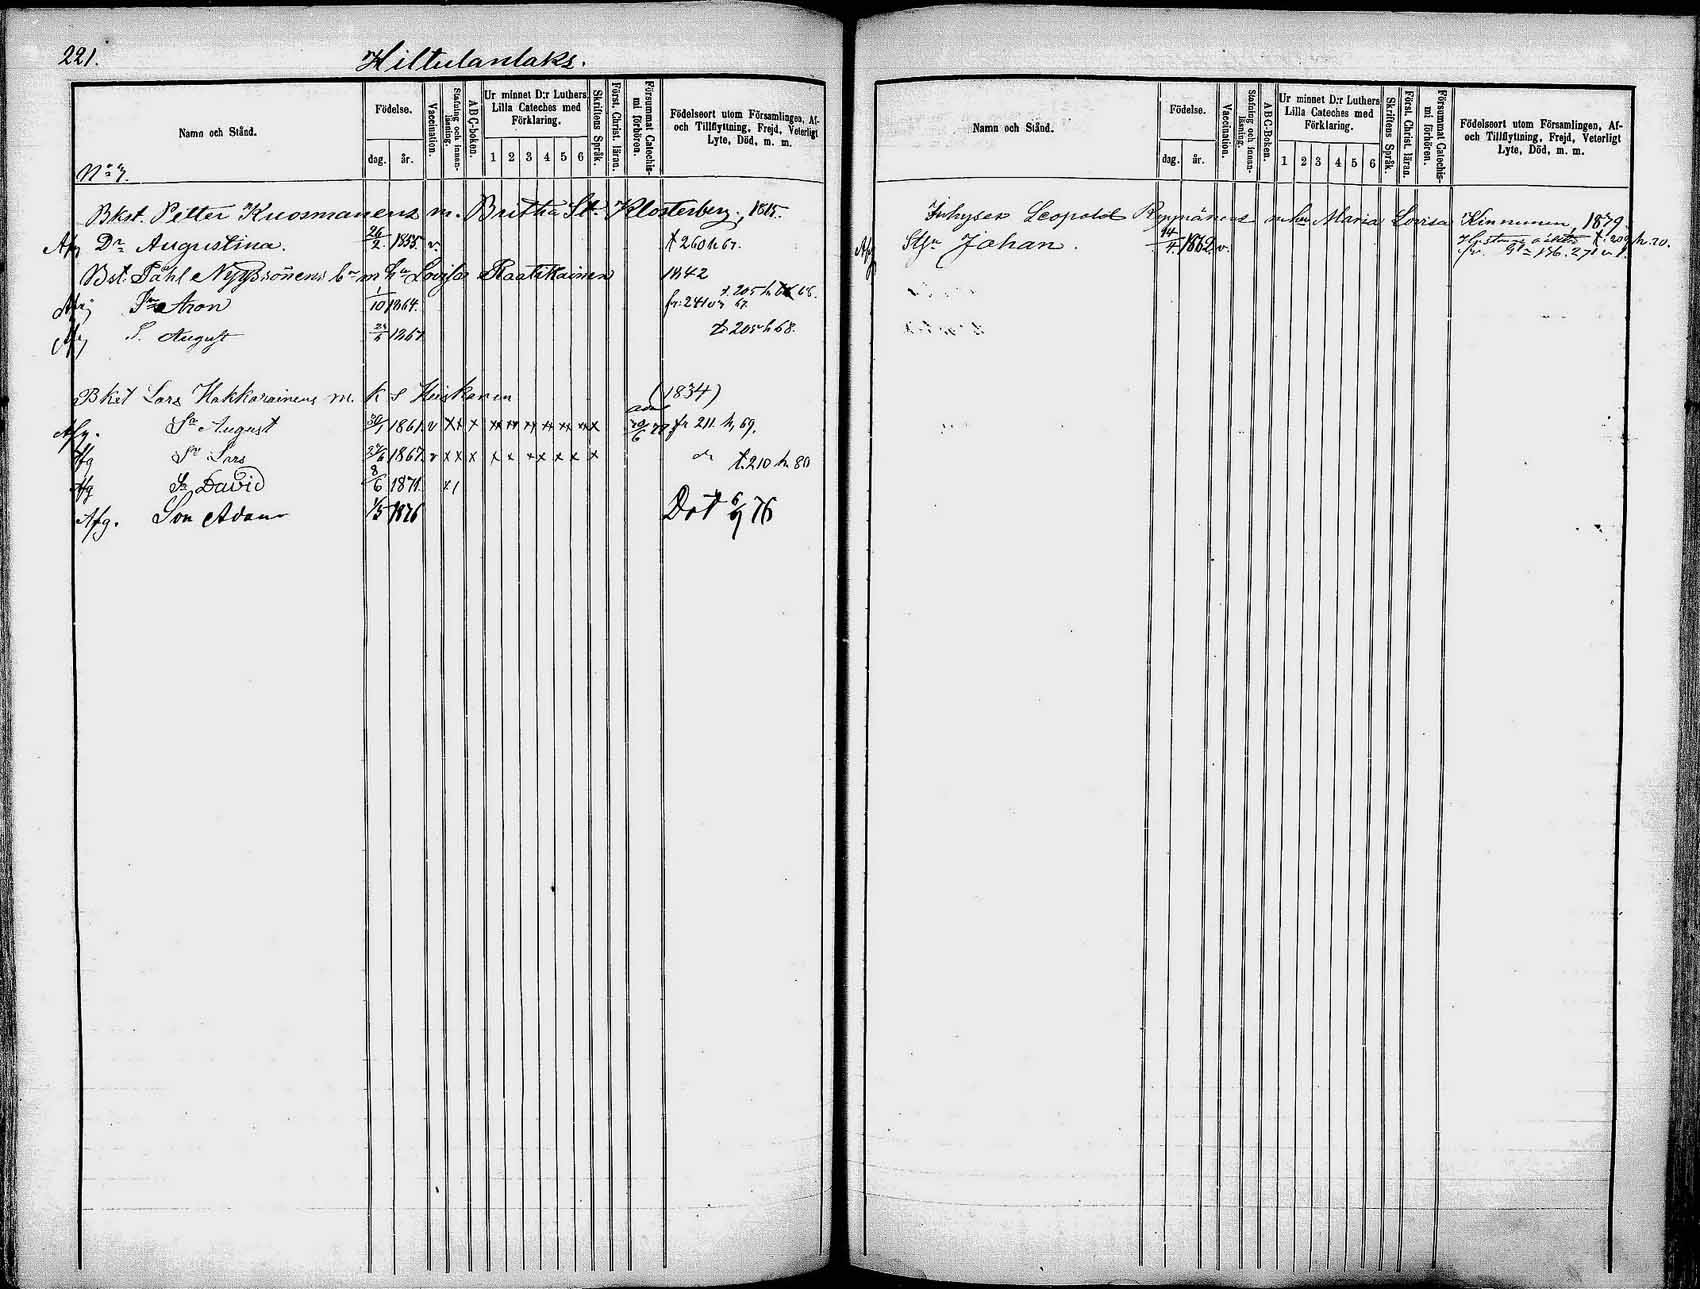 221.
Hiltulanlaks.
Namn och Stånd.
Födelse.
dag. år.
Vaccination.
Stafning och innan-läsning.
ABC-boken.
Ur minnet D:r Luthers Lilla Cateches med Förklaring.
1 2 3 4 5 6
Skriftens Språk.
Först. Christ. läran.
Försummat Catechis-mi förhören.
Födelseort utom Församlingen, Af-
och Tillflyttning, Frejd, Veterligt
Lyte, Död, m. m.
No 7.
Bkst. Petter Kuosmanens m. Britha St. Klosterberg, 1815.
Afg Dr Augustina. 26/2. 1855. v t 260 h 67.
Bst. Påhl Nyyssönens hu Lovisa Raatikainen 1842
Afg Sn Aron 1/10 1864. fr. 241 67. t. 205 h 68.
Afg S. August 1867 t. 205 h 68.
Bkst Lars Hakkarainens m. k s Heiskanen (1834)
Afg. Sn August 1861 v xx x x x x x x x x fr 211 h, 69.
Afg Sn Lars 1867. v x x x x x x x x x x t. 210 h. 80
Afg Sn David 8/6 1871. x /
Afg. Son Adam 1/5 1876 Död 6/9 76
Namn och Stånd.
Födelse.
dag. år.
Vaccination.
Stafning och innan-läsning.
ABC-Boken.
Ur minnet D:r Luthers Lilla Cateches med Förklaring.
1 2 3 4 5 6
Skriftens Språk.
Först. Christ. läran.
Försummat Catechis-mi förhören.
Födelseort utom Församlingen, Af-
och Tillflyttning, Frejd, Veterligt
Lyte, Död, m. m.
Inhyses Leopold hu Maria Lovisa Kinnunen, 1879.
Afg Johan. 14/4. 1862 v. t. 209 h. 70.